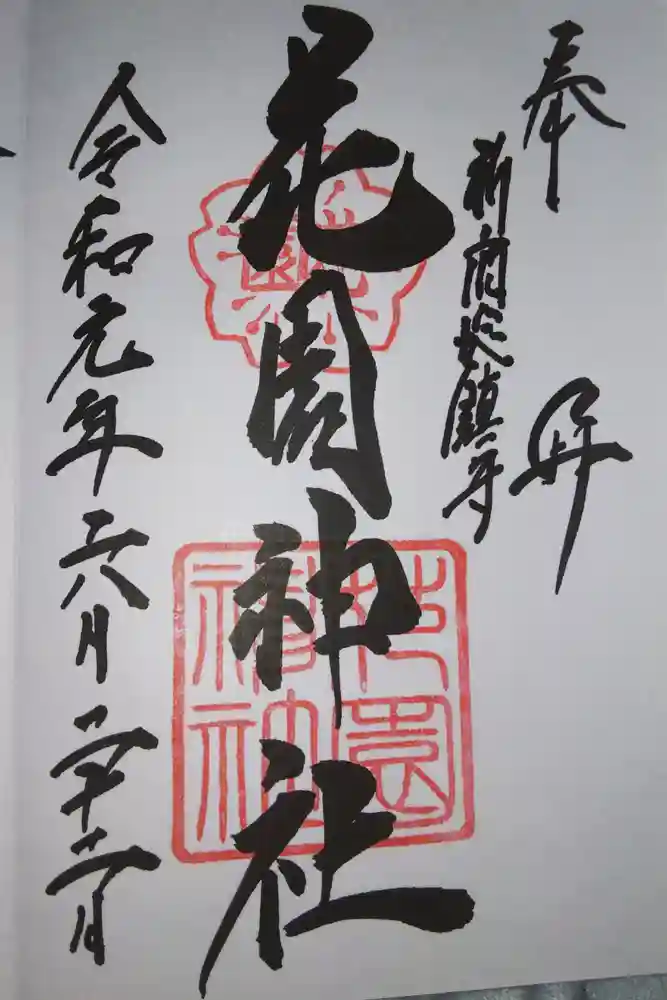 奉拝
新宿総鎮守
花園神社
令和元年六月二十二日
花園
花園
神社